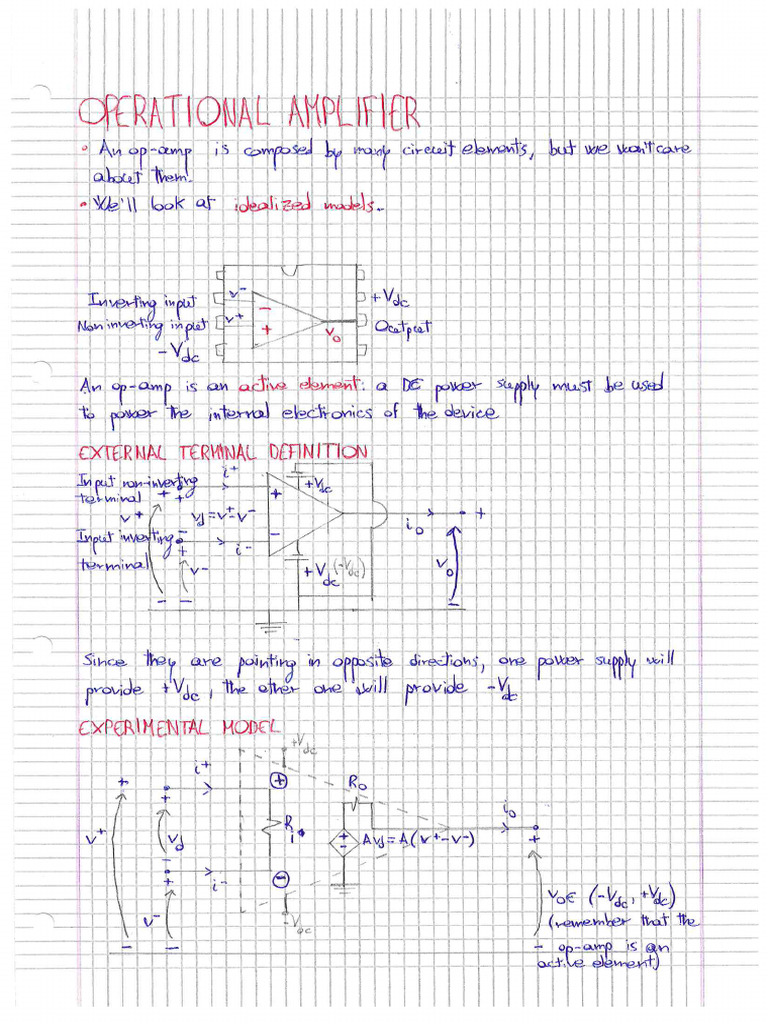 OPERATIONAL AMPLIFIER
• An op-amp is composed by many circuit elements, but we won't care
about them.
• We'll look at idealized models.
Inverting input v⁻ +Vdc
Non inverting input v⁺ - + vo Output
-Vdc
An op-amp is an active element: a DC power supply must be used
to power the internal electronics of the device
EXTERNAL TERMINAL DEFINITION
Input non-inverting i⁺ +Vdc
terminal + + +
v⁺ vd=v⁺-v⁻ io +
Input inverting - + i⁻ -
terminal v⁻ +Vdc (-Vdc) vo
- - -
Since they are pointing in opposite directions, one power supply will
provide +Vdc, the other one will provide -Vdc
EXPERIMENTAL MODEL
+Vdc
+ + i⁺ + Ro
v⁺ vd Ri + - Avd=A(v⁺-v⁻) io +
- + i⁻ -
v⁻ -Vdc
vo∈ (-Vdc, +Vdc)
(remember that the
- - - op-amp is an
active element)